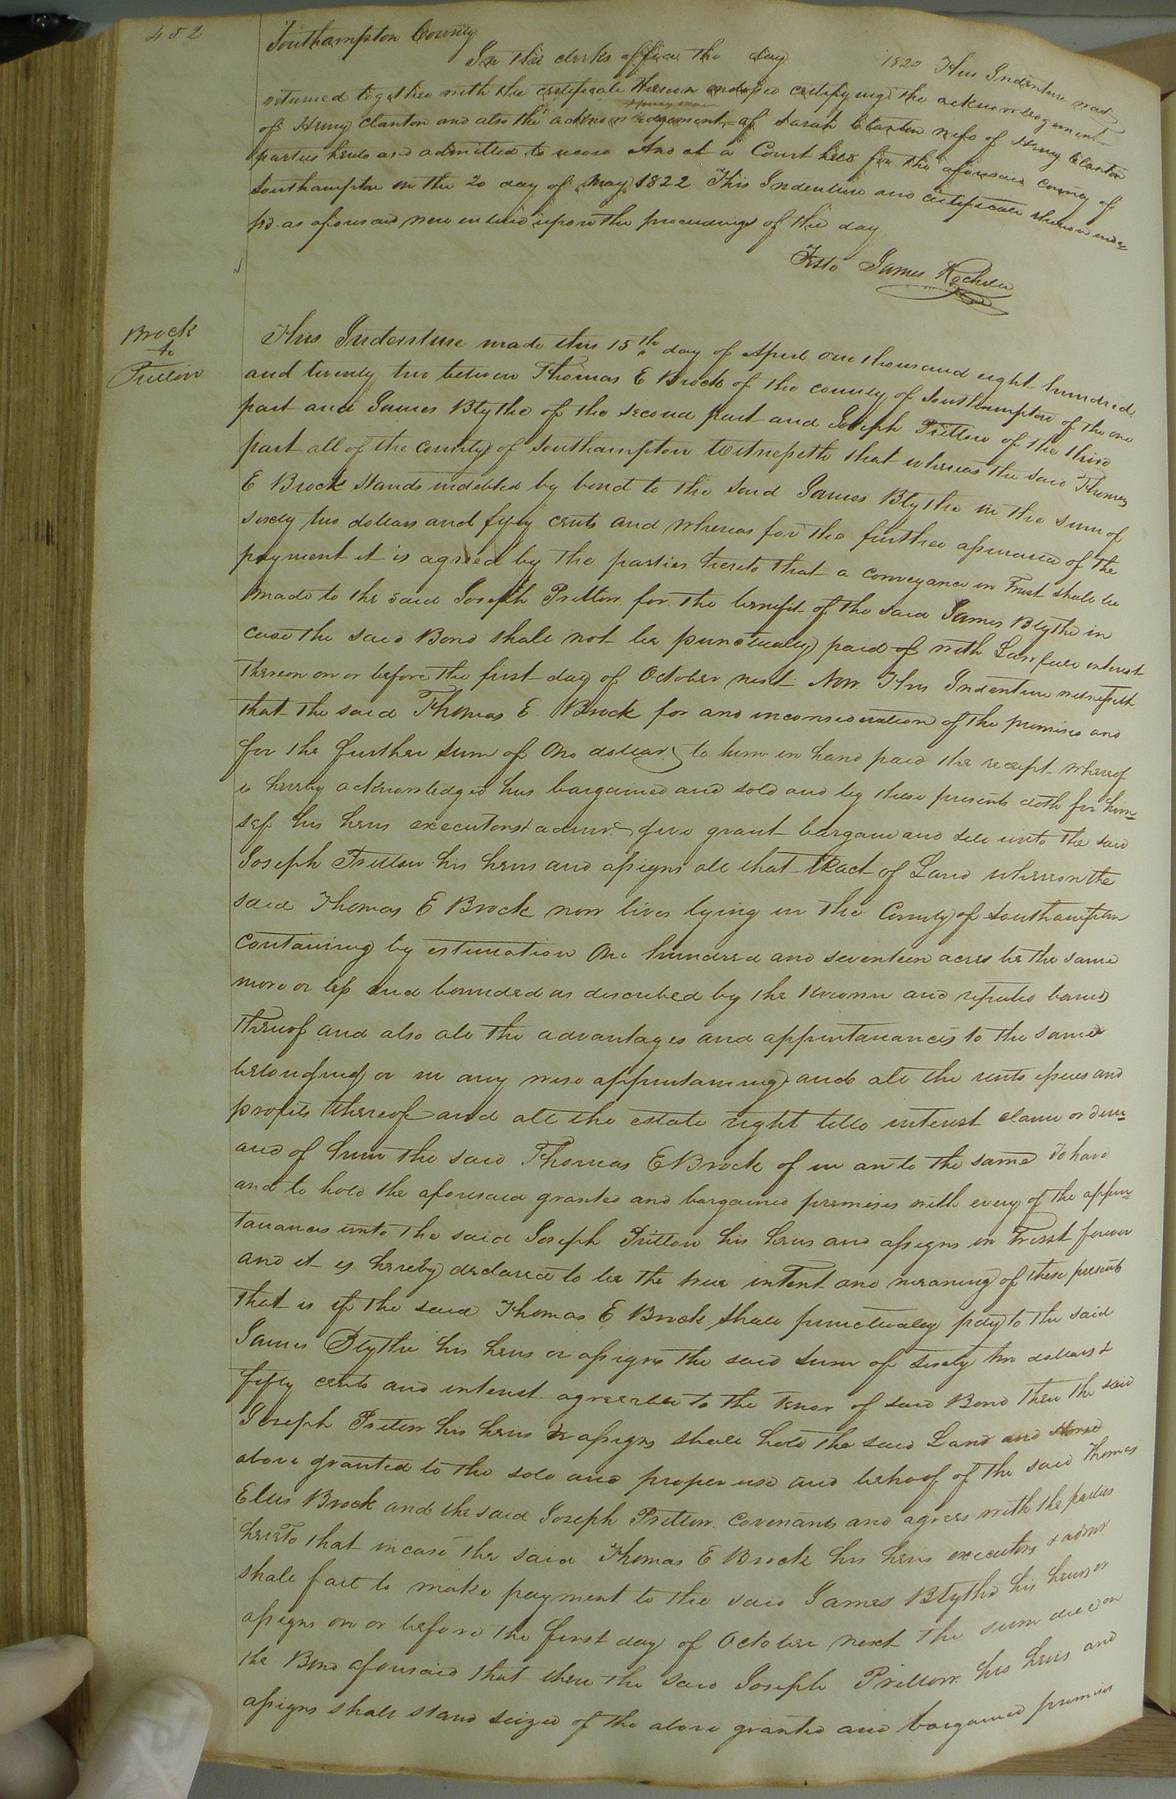 452
Southampton County
In the clerks office the day 1822 This Indenture was
returned together with the certificate thereon endorsed certifying the acknowledgment
of Henry Clanton and also the acknowledgment of Sarah Clanton wife of Henry Clanton
parties hereto and admitted to record And at a Court held for the aforesaid County of
Southampton on the 20 day of May 1822 This Indenture and certificate thereon
as aforesaid were entered upon the proceedings of the day
Teste James Rochelle
Brock
to
Pretlow
This Indenture made this 15th day of April one thousand eight hundred
and twenty two between Thomas E Brock of the county of Southampton of the one
part and James Blythe of the second part and Joseph Pretlow of the third
part all of the County of Southampton Witnesseth that whereas the said Thomas
E Brock stands indebted by bond to the said James Blythe in the sum of
sixty two dollars and fifty cents and whereas for the further assurance of the
payment it is agreed by the parties hereto that a conveyance in Trust shall be
made to the said Joseph Pretlow for the benefit of the said James Blythe in
case the said Bond shall not be punctually paid of with Lawfull interest
thereon on or before the first day of October next Now This Indenture witnesseth
that the said Thomas E. Brock for and inconsideration of the premises and
for the further sum of One dollar to him in hand paid the receipt whereof
is hereby acknowledged has bargained and sold and by these presents doth for him
self his heirs executors & admrs give grant bargain and sell unto the said
Joseph Pretlow his heirs and assigns all that tract of Land whereon the
said Thomas E Brock now lives lying in the County of Southampton
containing by estimation One hundred and seventeen acres be the same
more or less and bounded as described by the known and reputed bounds
thereof and also all the advantages and appurtanances to the same
belonging or in any wise appurtaining and all the rents issues and
profits thereof and all the estate right title interest claim or dem
and of him the said Thomas E Brock of in an to the same To have
and to hold the aforesaid granted and bargained premises with every of the appur
tanances unto the said Joseph Pretlow his heirs and assigns in Trust forever
and it is hereby declared to be the true intent and meaning of these presents
that is if the said Thomas E Brock shall punctually pay to the said
James Blythe his heirs or assigns the said sum of sixty two dollars &
fifty cents and interest agreeable to the tenor of said Bond then the said
Joseph Pretlow his heirs & assigns shall hold the said Land
above granted to the sole and proper use and behoof of the said Thomas
Elus Brock and the said Joseph Pretlow covenants and agrees with the parties
hereto that incase the said Thomas E Brock his heirs executors & admr
shall fail to make payment to the said James Blythe his heirs or
assigns on or before the first day of October next the sum due on
the Bond aforesaid that then the said Joseph Pretlow his heirs and
assigns shall stand seized of the above granted and bargained premises